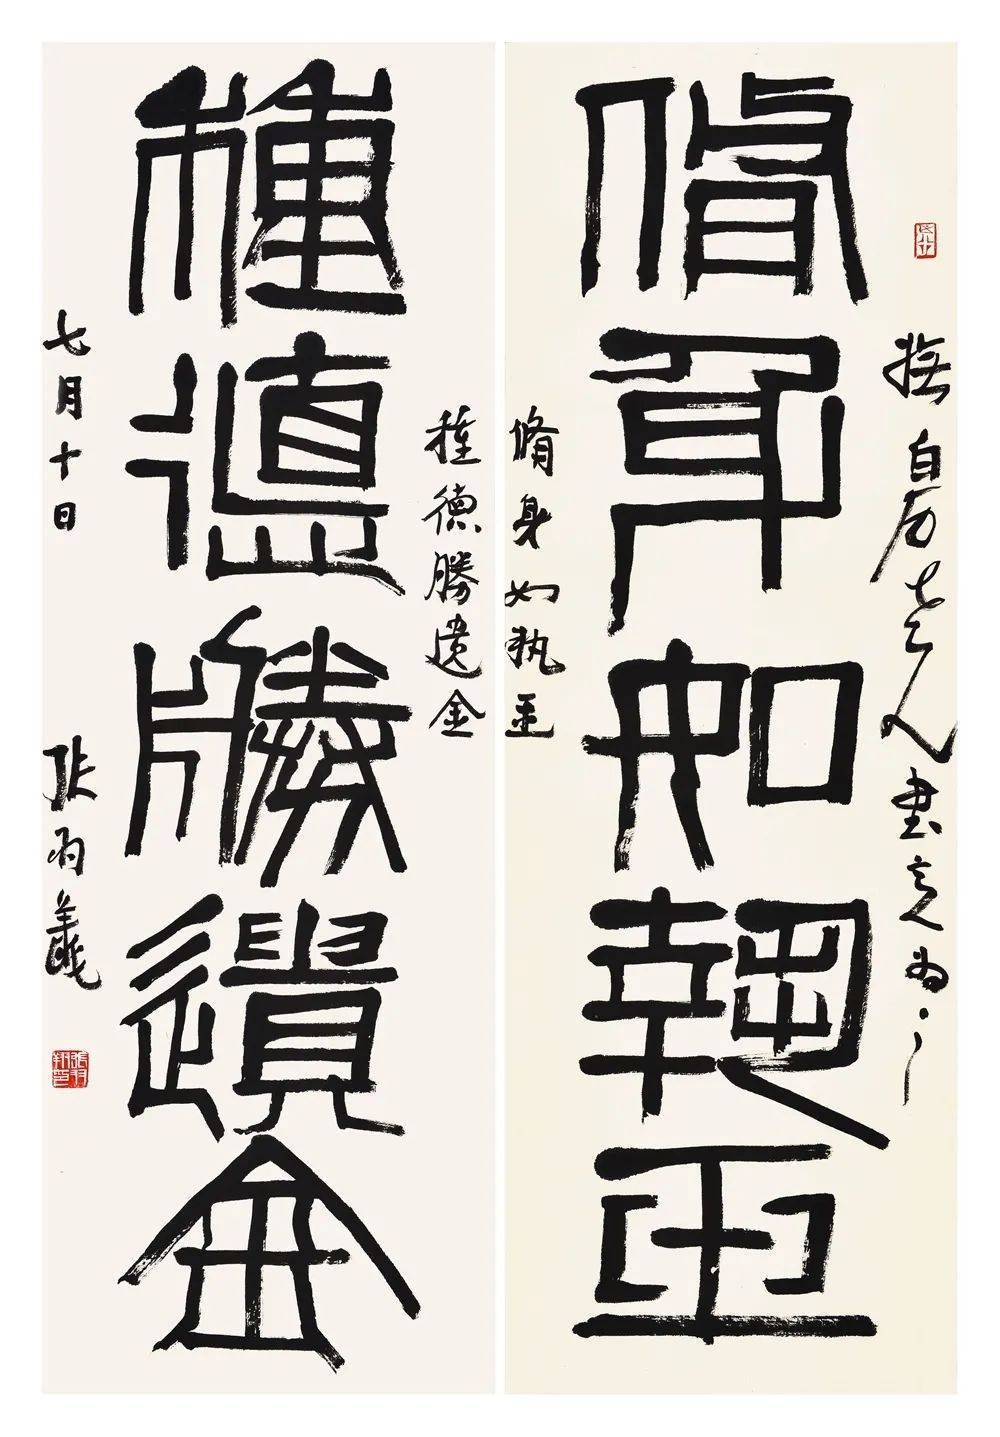 撫白石老人書意為之
脩身如執玉
脩身如執玉
種德勝遺金
種德勝遺金
七月十日 張羽翔